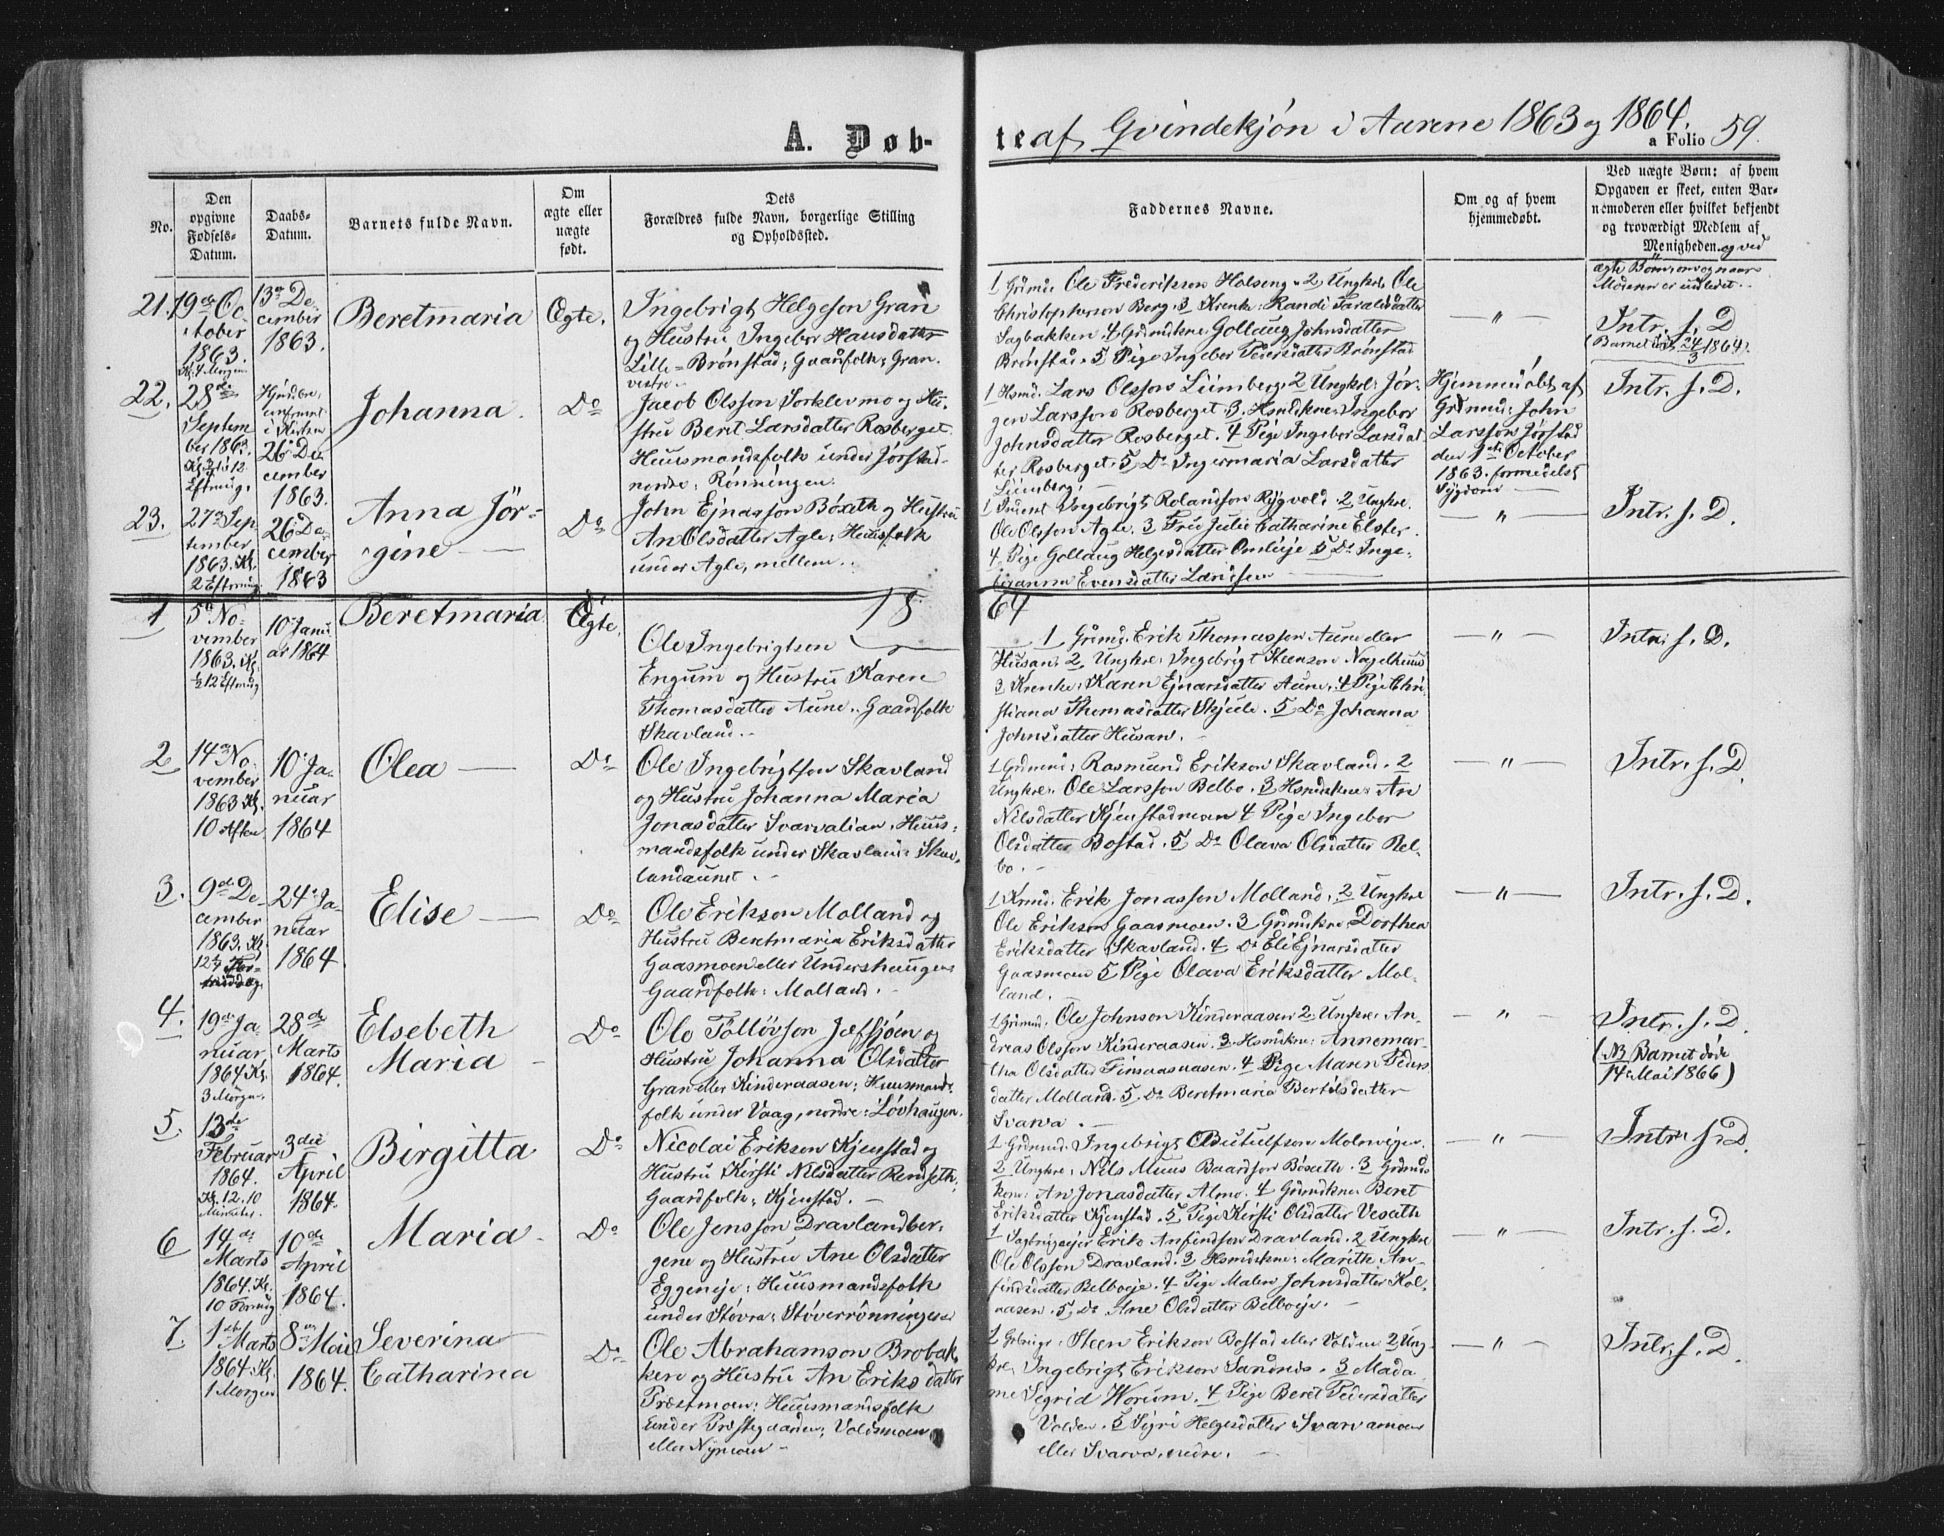 A. Døb-
teaf Qvindekjøn i Aarene 1863 og 1864.
a Folio 59.
No.
Den opgivne Fødsels-Datum.
Daabs-Datum.
Barnets fulde Navn.
Om ægte eller uægte født.
Dets Forældres fulde Navn, borgerlige Stilling og Opholdssted.
Faddernes Navne.
Om og af hvem hjemmedøbt.
Ved uægte Børn: af hvem
Opgaven er skeet, enten Bar-
nemoderen eller hvilket bekjendt
og troværdigt Medlem af
Menigheden. og ved
ægte Børn, om og naar
Moderen er indledet.
21.
19de Oc-
tober
1863.
13de De-
cember
1863.
Beretmaria
Ægte.
Ingebrigt Helgeson Gran
og Hustru Ingebor Hansdatter
Lille-Brønstad; Gaardfolk; Gran
vestre.
1 Grdmd: Ole Frederiksson Holseng. 2 Ungkrl: Ole
Christophersen Berg. 3 Krenke: Randi Taralsdatter
Sagbakken. 4 Grdmdkne Gollaug Johnsdatter
Brønstad. 5 Pige Ingebor Pedersdatter Brønstad
— " —
Intr. f. D
24/3 1864.
22.
28de
Septem
ber 1863.
Eftmdg.
26de De
cember
1863.
Johanna.
Do
Jacob Olsson Sorklevmo og Hu-
stru Beret Larsdatter Rosberget
Huusmandsfolk under Jørstad
nordre: Rønningen.
1 Hsmd. Lars Olsson Liimberg. 2 Ungkrl: Jør-
gen Larsson Rosberget. 3. Hsmdkne: Ingebor
Johnsdatter Rosberget. 4 Pige Ingebor Larsdat
ter Rosberget. 5 Do Ingermaria Larsdatter
Liimberg.
Hjemmedøbt af
Grdmd: John
Larsson Jørstad
den 1ste October
1863. formedelst
Sygdom —
Intr. f. D.
23.
27de Sep
tember
1863. Kl.
2 Eftmdg.
26de De
cember
1863
Anna Jør-
gine —
Do
John Ejnarsson Bøxeth og Hustru
An Olsdatter Agle; Huusfolk
under Agle, mellem.
Ingebrigt Rolandson Rygvold. 2 Ungkre.
Ole Olsson Agle. 3 Fru Julie Catharine Elster.
4 Pige Gollaug Helgesdatter 5 Do Inge-
boranna Evensdatter
— " —
Intr. f. D.
18
64
1
5te No-
vember
1863. Kl.
½ 12 Eftmdg
10 Janu
ar 1864
Beretmaria
Ægte.
Ole Ingebrigtsen
Engum og Hustru Karen
Thomasdatter Aune. Gaardfolk
Skavland.
1 Grdmd. Erik Thomasson Aune eller
Husan. 2 Ungkre: Ingebrigt Steenson Nagelhuus
3 Krenke: Karen Ejnarsdatter Aune. 4 Pige Chri
stiana Thomasdatter Skjele. 5 Do Johanna
Johnsdatter Husan.
— " —
Intr. f. D.
2
14de No-
vember
1863 Kl.
10 Aften
10 Ja-
nuar
1864
Olea —
Do
Ole Ingebrigtson Skavland
og Hustru Johanna Maria
Jonasdatter Svarvalian. Huus-
mandsfolk under Skavland: Skav-
landaunet.
1 Grdmd: Rasmund Erikson Skavland. 2
Ungkre. Ole Larsson Belbo. 3 Hsmdkne: An
Nilsdatter Kjenstadmoen 4 Pige Ingebor
Olsdatter Bostad. 5 Do Olava Olsdatter Bel-
bo.
— " —
Intr. f. D.
3.
9de De-
cember
1863. Kl.
24. Ja-
nuar
1864.
Elise —
Do
Ole Erikson Molland og
Hustru Beretmaria Eriksdatter
Gaasmoen eller Undershaugen
Gaardfolk: Molland.
Erik Jonasson Molland. 2 Ungkre
Ole Erikson Gaasmoen. 3 Grdmdkne Dorthea
Eriksdatter Skavland. 4 Do Eli Ejnarsdatter
Gaasmoen 5 Pige Olava Eriksdatter Mol-
land.
— " —
Intr. f. D.
4.
19de Ja-
nuar
1864 Kl.
3 Morgen
28de
Marts
1864.
Elsebeth
Maria —
Do
Ole Tolløvson Jæfsjøen og
Hustru Johanna Olsdatter
Gran eller Kinderaasen; Huusmands-
folk under Vaag, nordre: Løvhaugen.
1 Grdmd. Ole Johnson Kinderaasen 2 Ungkre: An-
dreas Olsson Kinderaasen. 3 Hsmdkne: Annemar-
tha Olsdatter Finsaasaasen. 4 Pige Maren Peders
datter Molland. 5. Do Beretmaria Bertilsdatter
Svarva.
— " —
Intr. f. D.
(NB Barnet døde
14de Mai 1866)
5.
13de
Februar
1864.
Kl. 12.10
Minuter.
3die
April
1864.
Birgitta
Do
Nicolai Erikson Kjenstad og
Hustru Kirsti Nilsdatter Remseth;
Gaardfolk; Kjenstad. —
1 Grdmd: Ingebrigt Molnviggen
2 Ungkre: Nils Muus Baardson Bøseth. 3 Grdmds
kone: An Jonasdatter Almo. 4 Grdmdkne Beret
Eriksdatter Kjenstad. 5 Pige Kirsti Olsdatter Veseth
— " —
Intr. f. D
6
14de
Marts
1864. Kl.
10 Formdg
10de
April
1864.
Maria —
Do
Ole Jensson Dravlandber-
gene og Hustru Ane Olsdatter
Eggeneje; Huusmandsfolk
under Støvra: Støverrønningen
1 Erik Anfindson Dravland. 2 Ungkre
Ole Olsson Dravland. 3 Hsmdkne: Marith An-
findsdatter Belboeje. 4 Pige Malen Johnsdatter Kol
aasen. 5. Do Ane Olsdatter Belboeje. —
— " —
Intr. f. D.
7.
1ste Marts
1864 Kl.
1 Morgen
8de Mai
1864.
Severina
Catharina
Do
Ole Abrahamson Brobak-
ken og Hustru An Eriksdatter
Præstmoen; Huusmandsfolk
under Præstegaarden; Voldsmoen
eller Nymoen —
Steen Erikson Bostad eller Volden 2 Ung-
kre. Ingebrigt Erikson Sandnes. 3 Mada-
me Sigrid Worum. 4 Pige Beret Pedersdatter
Volden. 5 Sigri Helgesdatter Svarvamoen
eller Svarva, nedre. —
— " —
Intr. f. D.